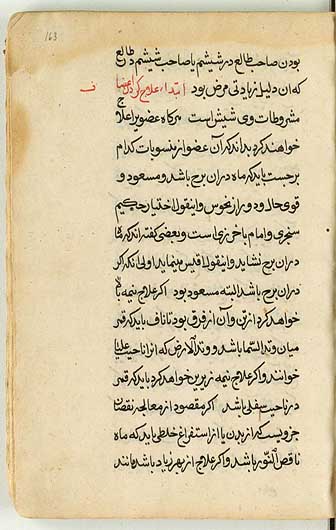 163
بودن صاحب طالع در ششم یا صاحب ششم در طالع
که ان دلیل زیادتی مرض بود ابتداء علاج کردن اعضا
مشروطات وی شیش است هرکاه عضویرا علاج
خواهند کرد بداند که آن عضو از منسوبات کدام
برجست باید که ماه در ان برج باشد و مسعود و
قوی حال و دور از نحوس و اینقول اختیار حکیم
سنجری و امام باخرزی است و بعضی کفته اند که
در ان برج نشاید و اینقول اقیس مینماید اولی انکه اکر
در ان برج باشد البته مسعود بود اکر علاج نیمه
خواهد کرد از تن و آن از فرق بود تا ناف باید که قمر
میان وتد السّما باشد و وتد الارض که انرا ناحیت علیا
خوانند و اکر علاج نیمه زیرین خواهد کرد باید که قمر
در ناحیت سفلی باشد اکر مقصود از معالجه نقصان
جزویست که از بدن یا از استفراغ خلطی باید که ماه
ناقص النّور باشد و اکر علاج از بهر زیاد باشد مانند